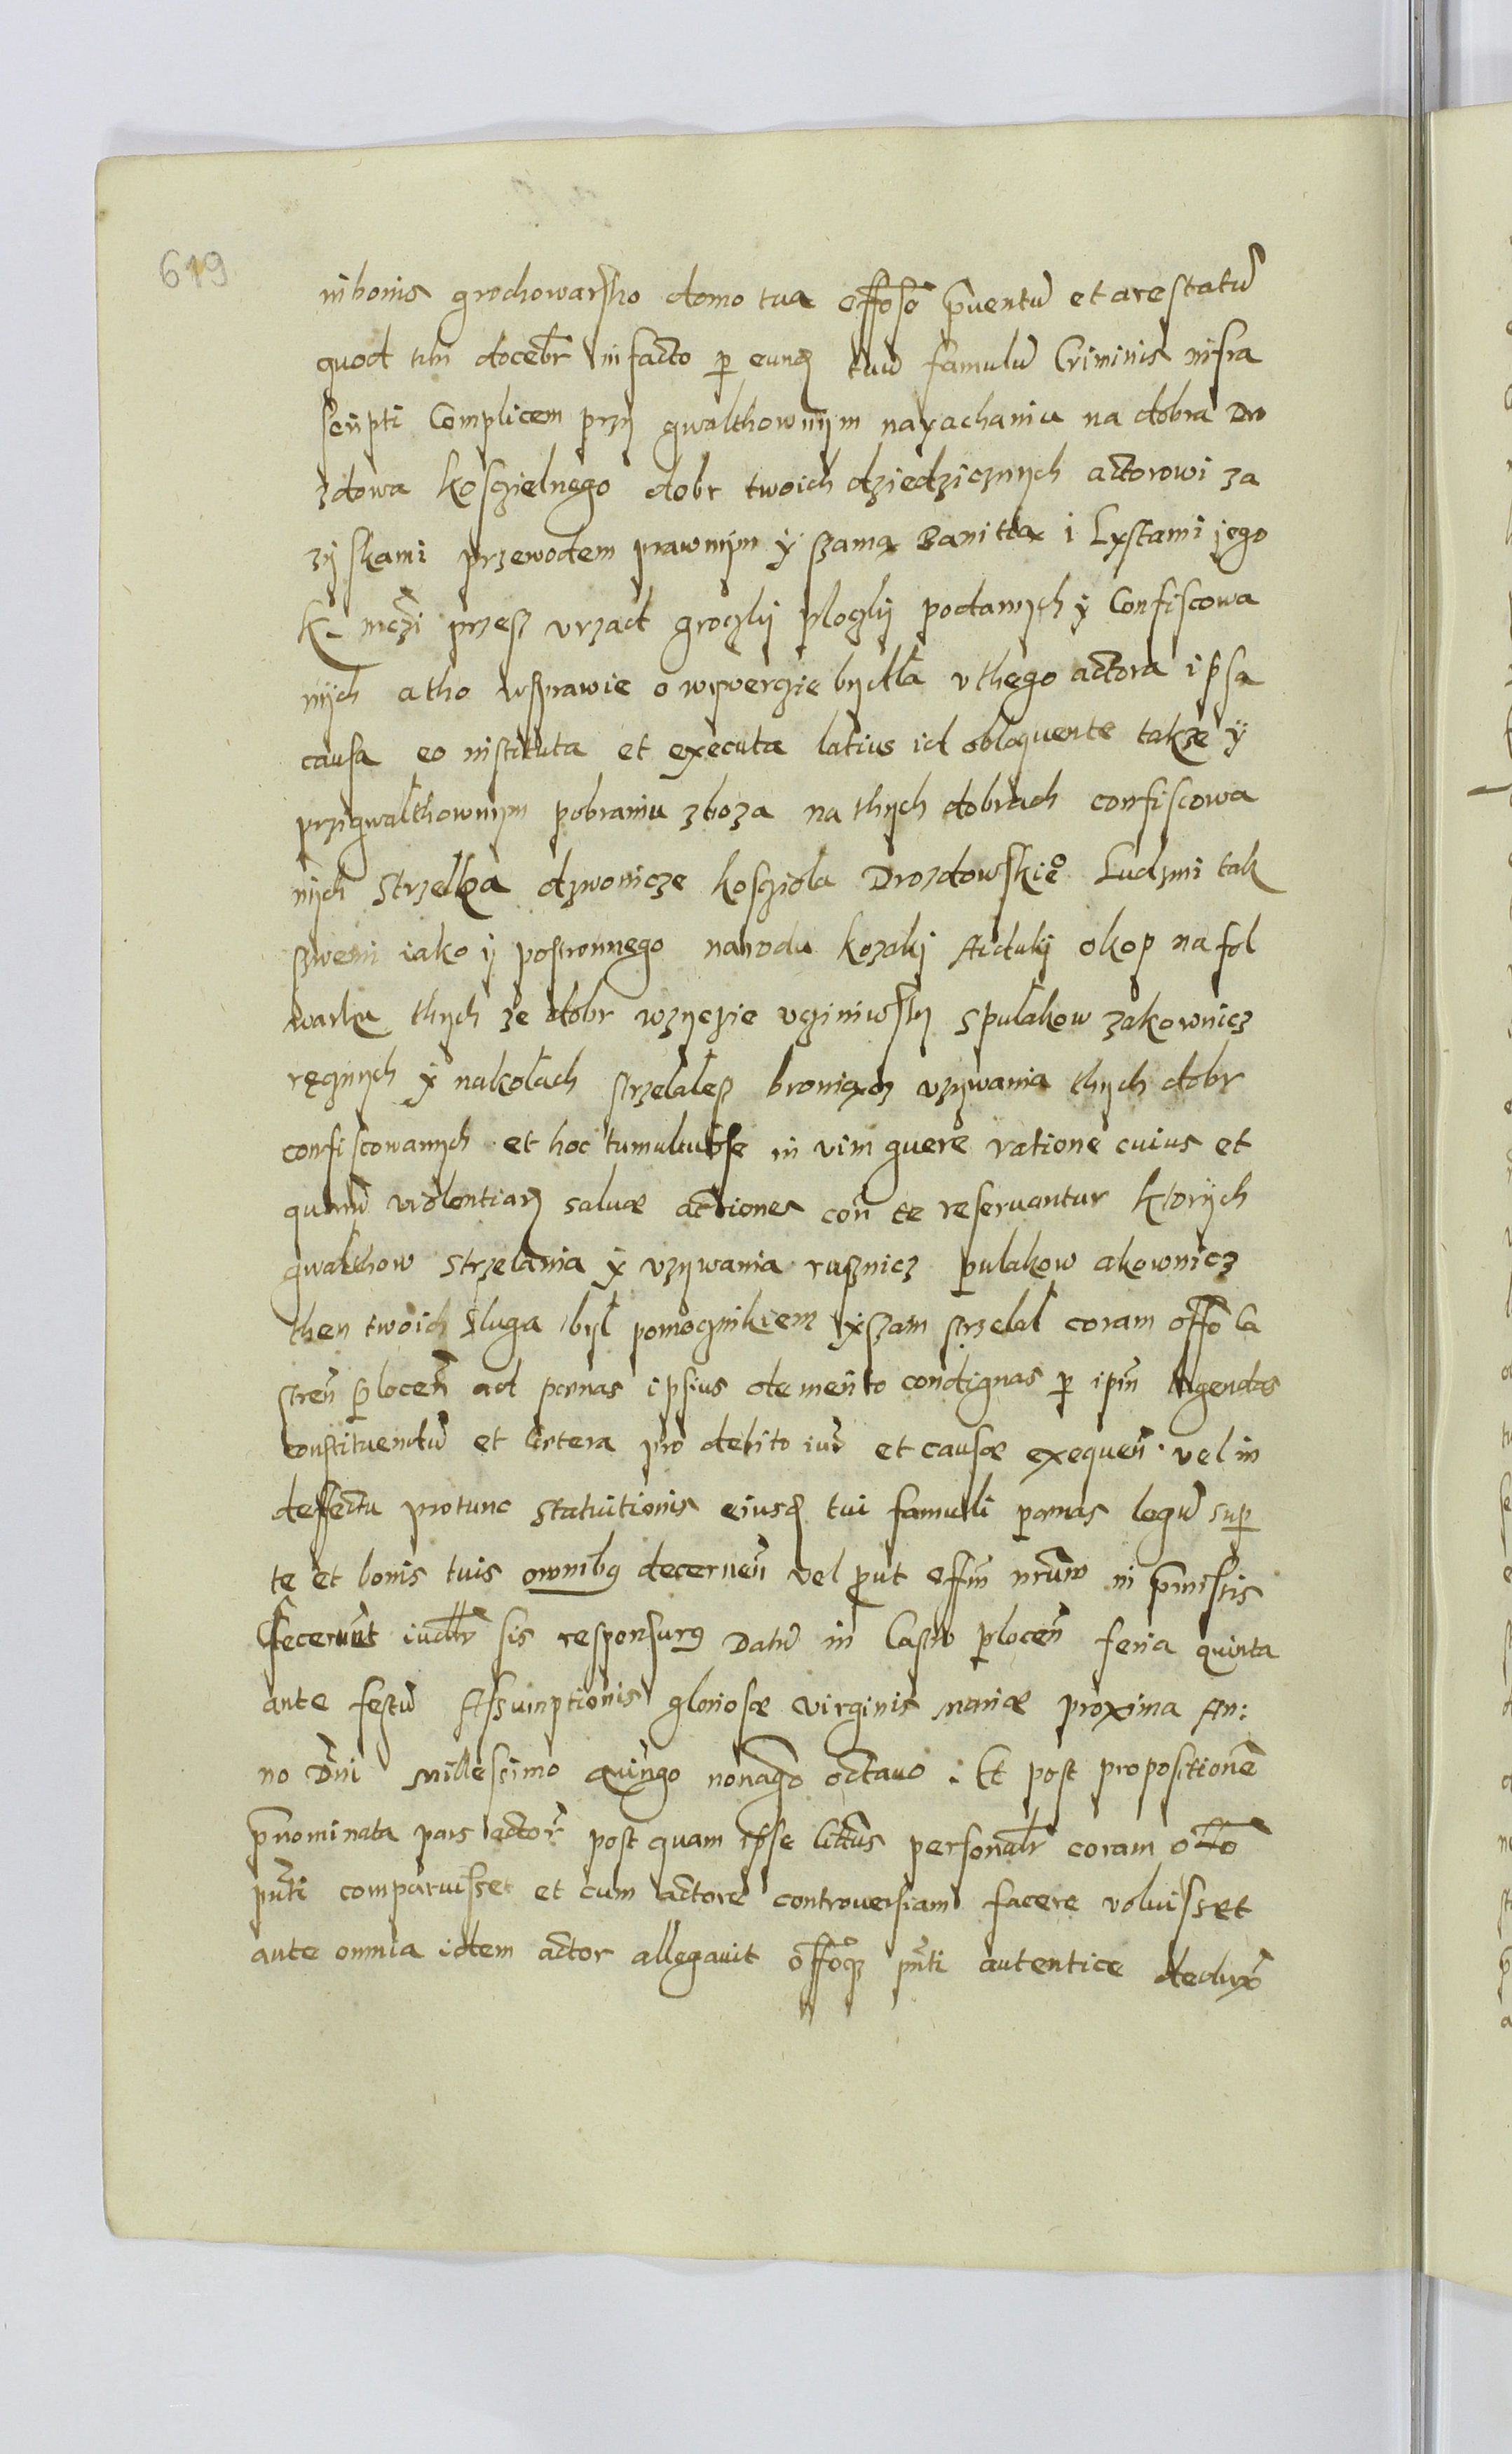 619
in bonis grochowarsko domo tua offoso pventu et arestatu
quod tibi docebr in facto p eunq tuu famulu Criminis infra
scripti Complicem przy gwalthownym nayachaniu na dobra Dro
zdowa kosczielnego dobr twoich dziedzicznych actorowi za
zyskami przewodem prawnym y szamą Banittą i Lystami jego
K. mczi przesz vrząd groczki ploczki podanych y Confiscowa
nych a tho wsprawie o wyverczie bydła v thego actora ipsa
causa eo instituta et executa latius id obloquente takze y
przigwalthownym pobraniu zboza na thych dobrach confiscowa
nych Strzelba dzwonicze kosczioła Drozdowskieo Ludzmi tak
szwemi iako y postronnego narodu kozaky Aiduky okop na fol
warku thych ze dobr wzyczie vcziniwszy spulakow zakownicz
ręcznych y nakołach strzelalesz broniącz vzywania thych dobr
confiscowanych et hoc tumultuose in vim guere ratione cuius et
quaru violentiarq salvæ actiones con te reservantur ktorych
gwalthow Strzelania y vzywania rusznicz pulakow akownicz
then twoich sluga był pomocznikiem y szam strzelał coram offo Ca
stren plocen ad pœnas ipsius demerito condignas p ipm lugendas
constituendu et Cætera pro debito iur et causæ exequen. vel in
deffectu protunc statuitionis ejusq tui famuli pœnas legu sup
te et bonis tuis omnibq decernen vel put offm nrum in pmissis
fecerunt iudbr sis responsurq Datu in Castro plocen feria quinta
ante festu Assumptionis gloriosæ virginis mariæ proxima An:
no Dni millessimo quingo nonago octavo. Et post propositione
pnominata pars actor post quam ipse littus personalr coram offo
pnti comparuisset et cum actore controversiam facere voluisset
ante omnia idem actor allegavit offoq pnti autentice deduxo